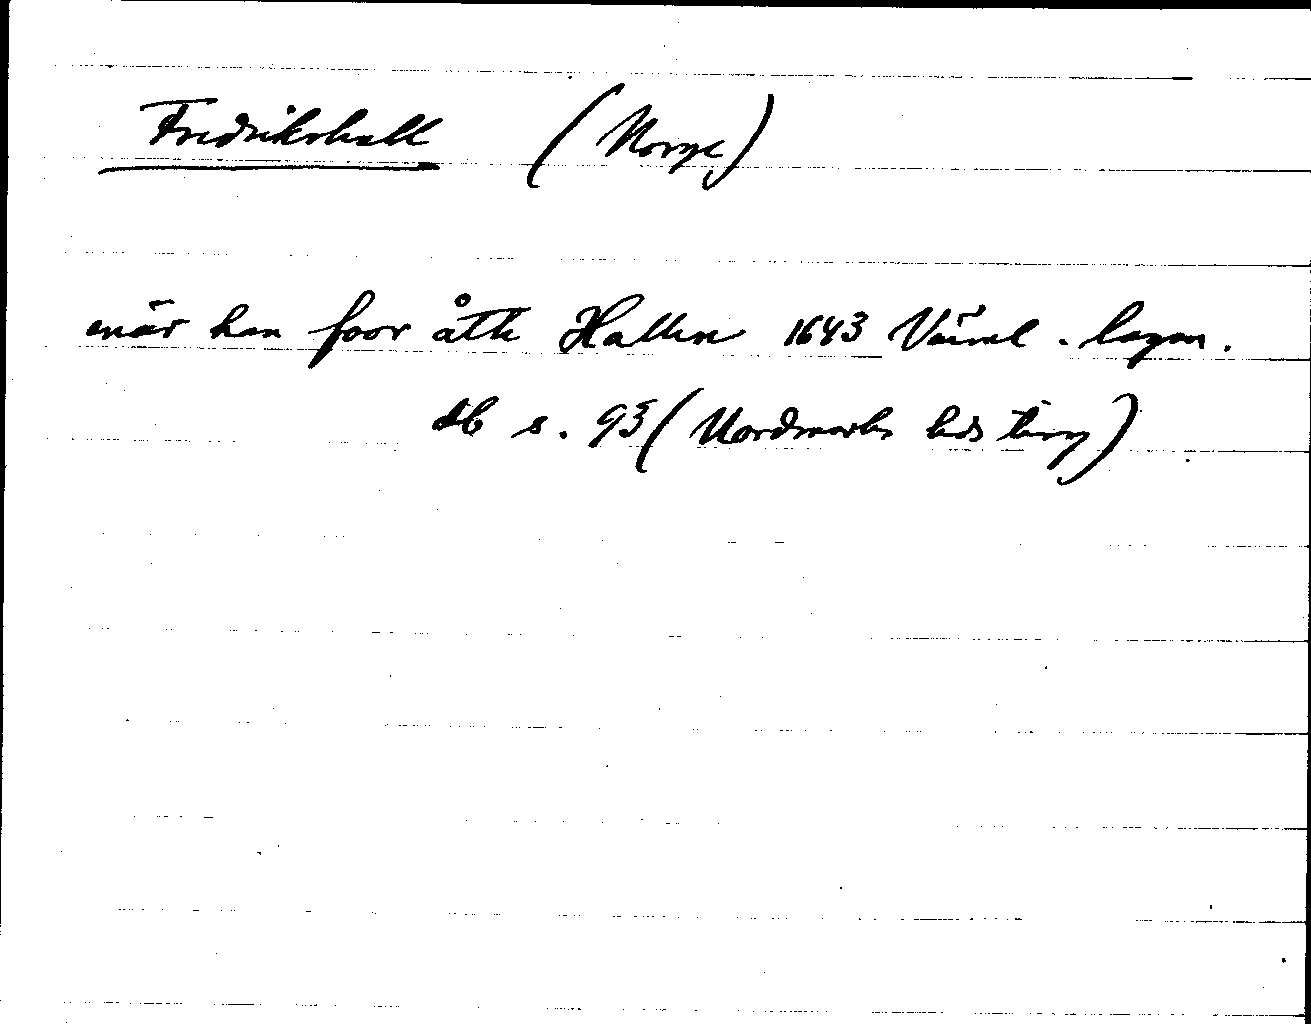 Fredrikshall (Norge)
när han foor åth Hallen 1643 Värml. lagm.
db s. 93 (Nordmarks hds ting)